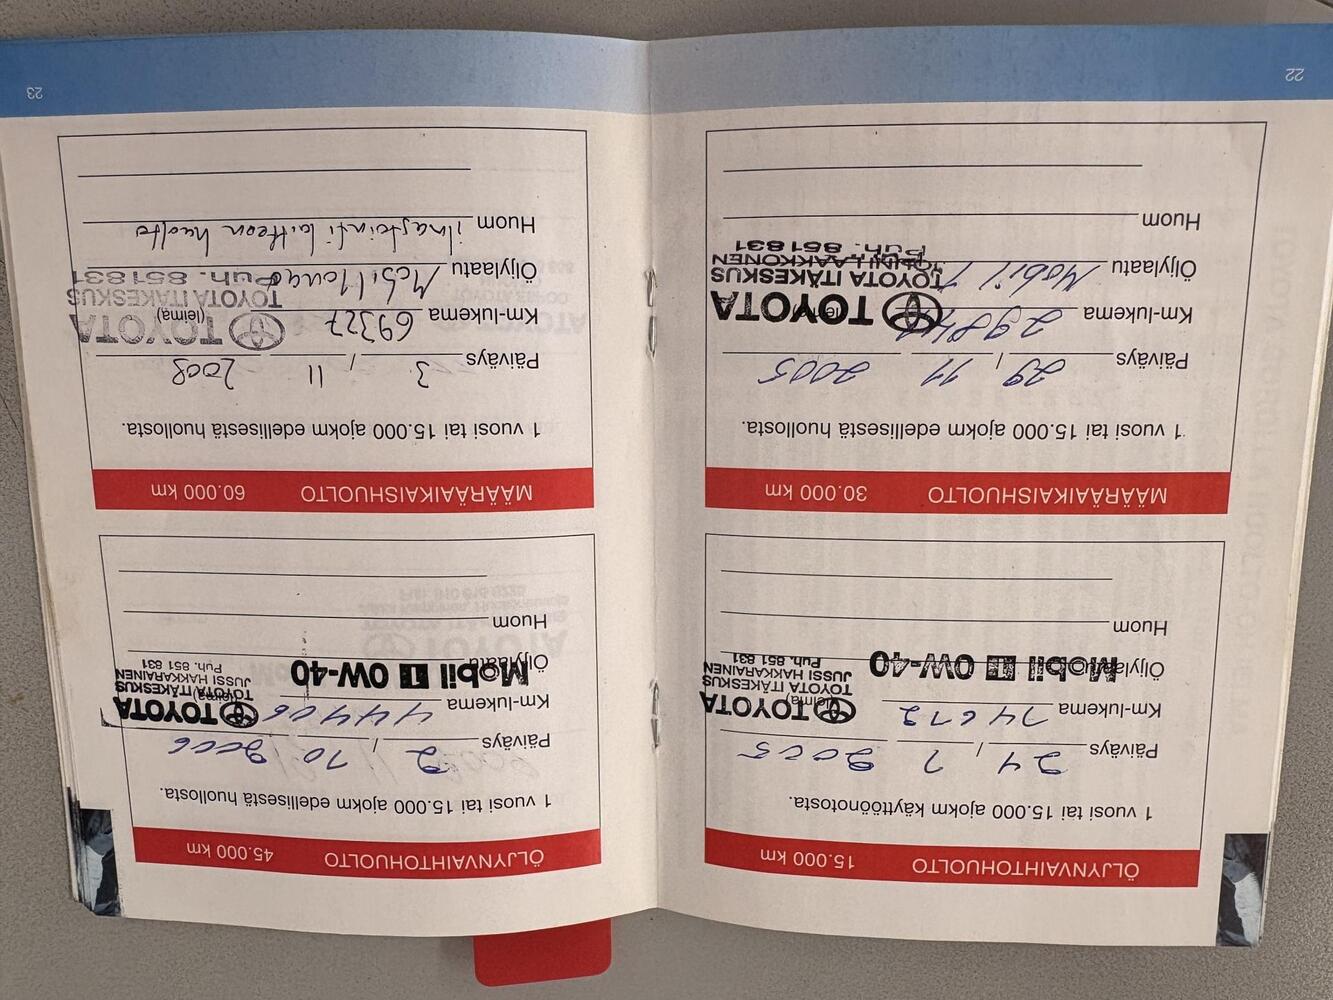 ÖLJYNVAIHTOHUOLTO 15.000 km
1 vuosi tai 15.000 ajokm käyttöönotosta.
Päiväys 21 / 1 2005
Km-lukema 14612
(leima)
TOYOTA
TOYOTA ITÄKESKUS
JUSSI HAKKARAINEN
Puh. 851 831
Öljylaatu Mobil 1 0W-40
Huom
MÄÄRÄAIKAISHUOLTO 30.000 km
1 vuosi tai 15.000 ajokm edellisestä huollosta.
Päiväys 29 / 11 2005
Km-lukema
TOYOTA
TOYOTA ITÄKESKUS
Puh. 851831
Öljylaatu Mobil 1
Huom
22
ÖLJYNVAIHTOHUOLTO 45.000 km
1 vuosi tai 15.000 ajokm edellisestä huollosta.
Päiväys 2 / 10 2006
Km-lukema 44406
(leima)
TOYOTA
TOYOTA ITÄKESKUS
JUSSI HAKKARAINEN
Puh. 851 831
Öljylaatu Mobil 1 0W-40
Huom
MÄÄRÄAIKAISHUOLTO 60.000 km
1 vuosi tai 15.000 ajokm edellisestä huollosta.
Päiväys 3 / 11 2008
Km-lukema 69327
(leima)
TOYOTA
TOYOTA ITÄKESKUS
Puh. 851831
Öljylaatu Mobil 1
Huom ilmastointi laitteen huolto
23